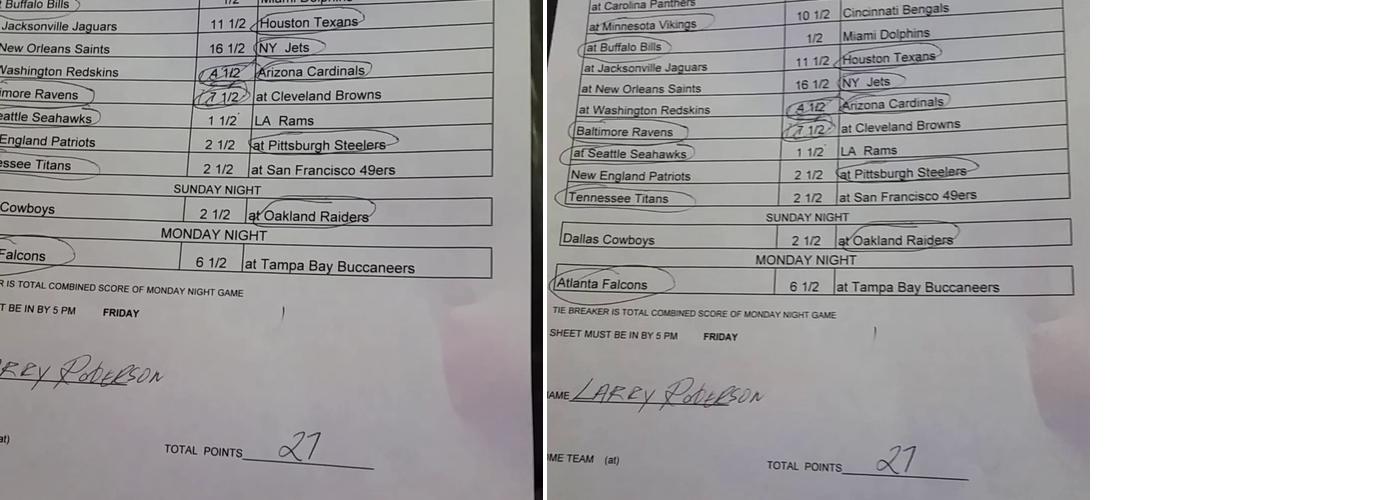 Buffalo Bills 1/2 Miami Dolphins
Jacksonville Jaguars 11 1/2 Houston Texans
New Orleans Saints 16 1/2 NY Jets
Washington Redskins 4 1/2 Arizona Cardinals
more Ravens 7 1/2 at Cleveland Browns
eattle Seahawks 1 1/2 LA Rams
England Patriots 2 1/2 at Pittsburgh Steelers
ssee Titans 2 1/2 at San Francisco 49ers
SUNDAY NIGHT
Cowboys 2 1/2 at Oakland Raiders
MONDAY NIGHT
Falcons 6 1/2 at Tampa Bay Buccaneers
R IS TOTAL COMBINED SCORE OF MONDAY NIGHT GAME
T BE IN BY 5 PM FRIDAY
RRY ROBERSON
at)
TOTAL POINTS 27
at Carolina Panthers
at Minnesota Vikings 10 1/2 Cincinnati Bengals
at Buffalo Bills 1/2 Miami Dolphins
at Jacksonville Jaguars 11 1/2 Houston Texans
at New Orleans Saints 16 1/2 NY Jets
at Washington Redskins 4 1/2 Arizona Cardinals
Baltimore Ravens 7 1/2 at Cleveland Browns
at Seattle Seahawks 1 1/2 LA Rams
New England Patriots 2 1/2 at Pittsburgh Steelers
Tennessee Titans 2 1/2 at San Francisco 49ers
SUNDAY NIGHT
Dallas Cowboys 2 1/2 at Oakland Raiders
MONDAY NIGHT
Atlanta Falcons 6 1/2 at Tampa Bay Buccaneers
TIE BREAKER IS TOTAL COMBINED SCORE OF MONDAY NIGHT GAME
SHEET MUST BE IN BY 5 PM FRIDAY
AME LARRY ROBERSON
ME TEAM (at)
TOTAL POINTS 27